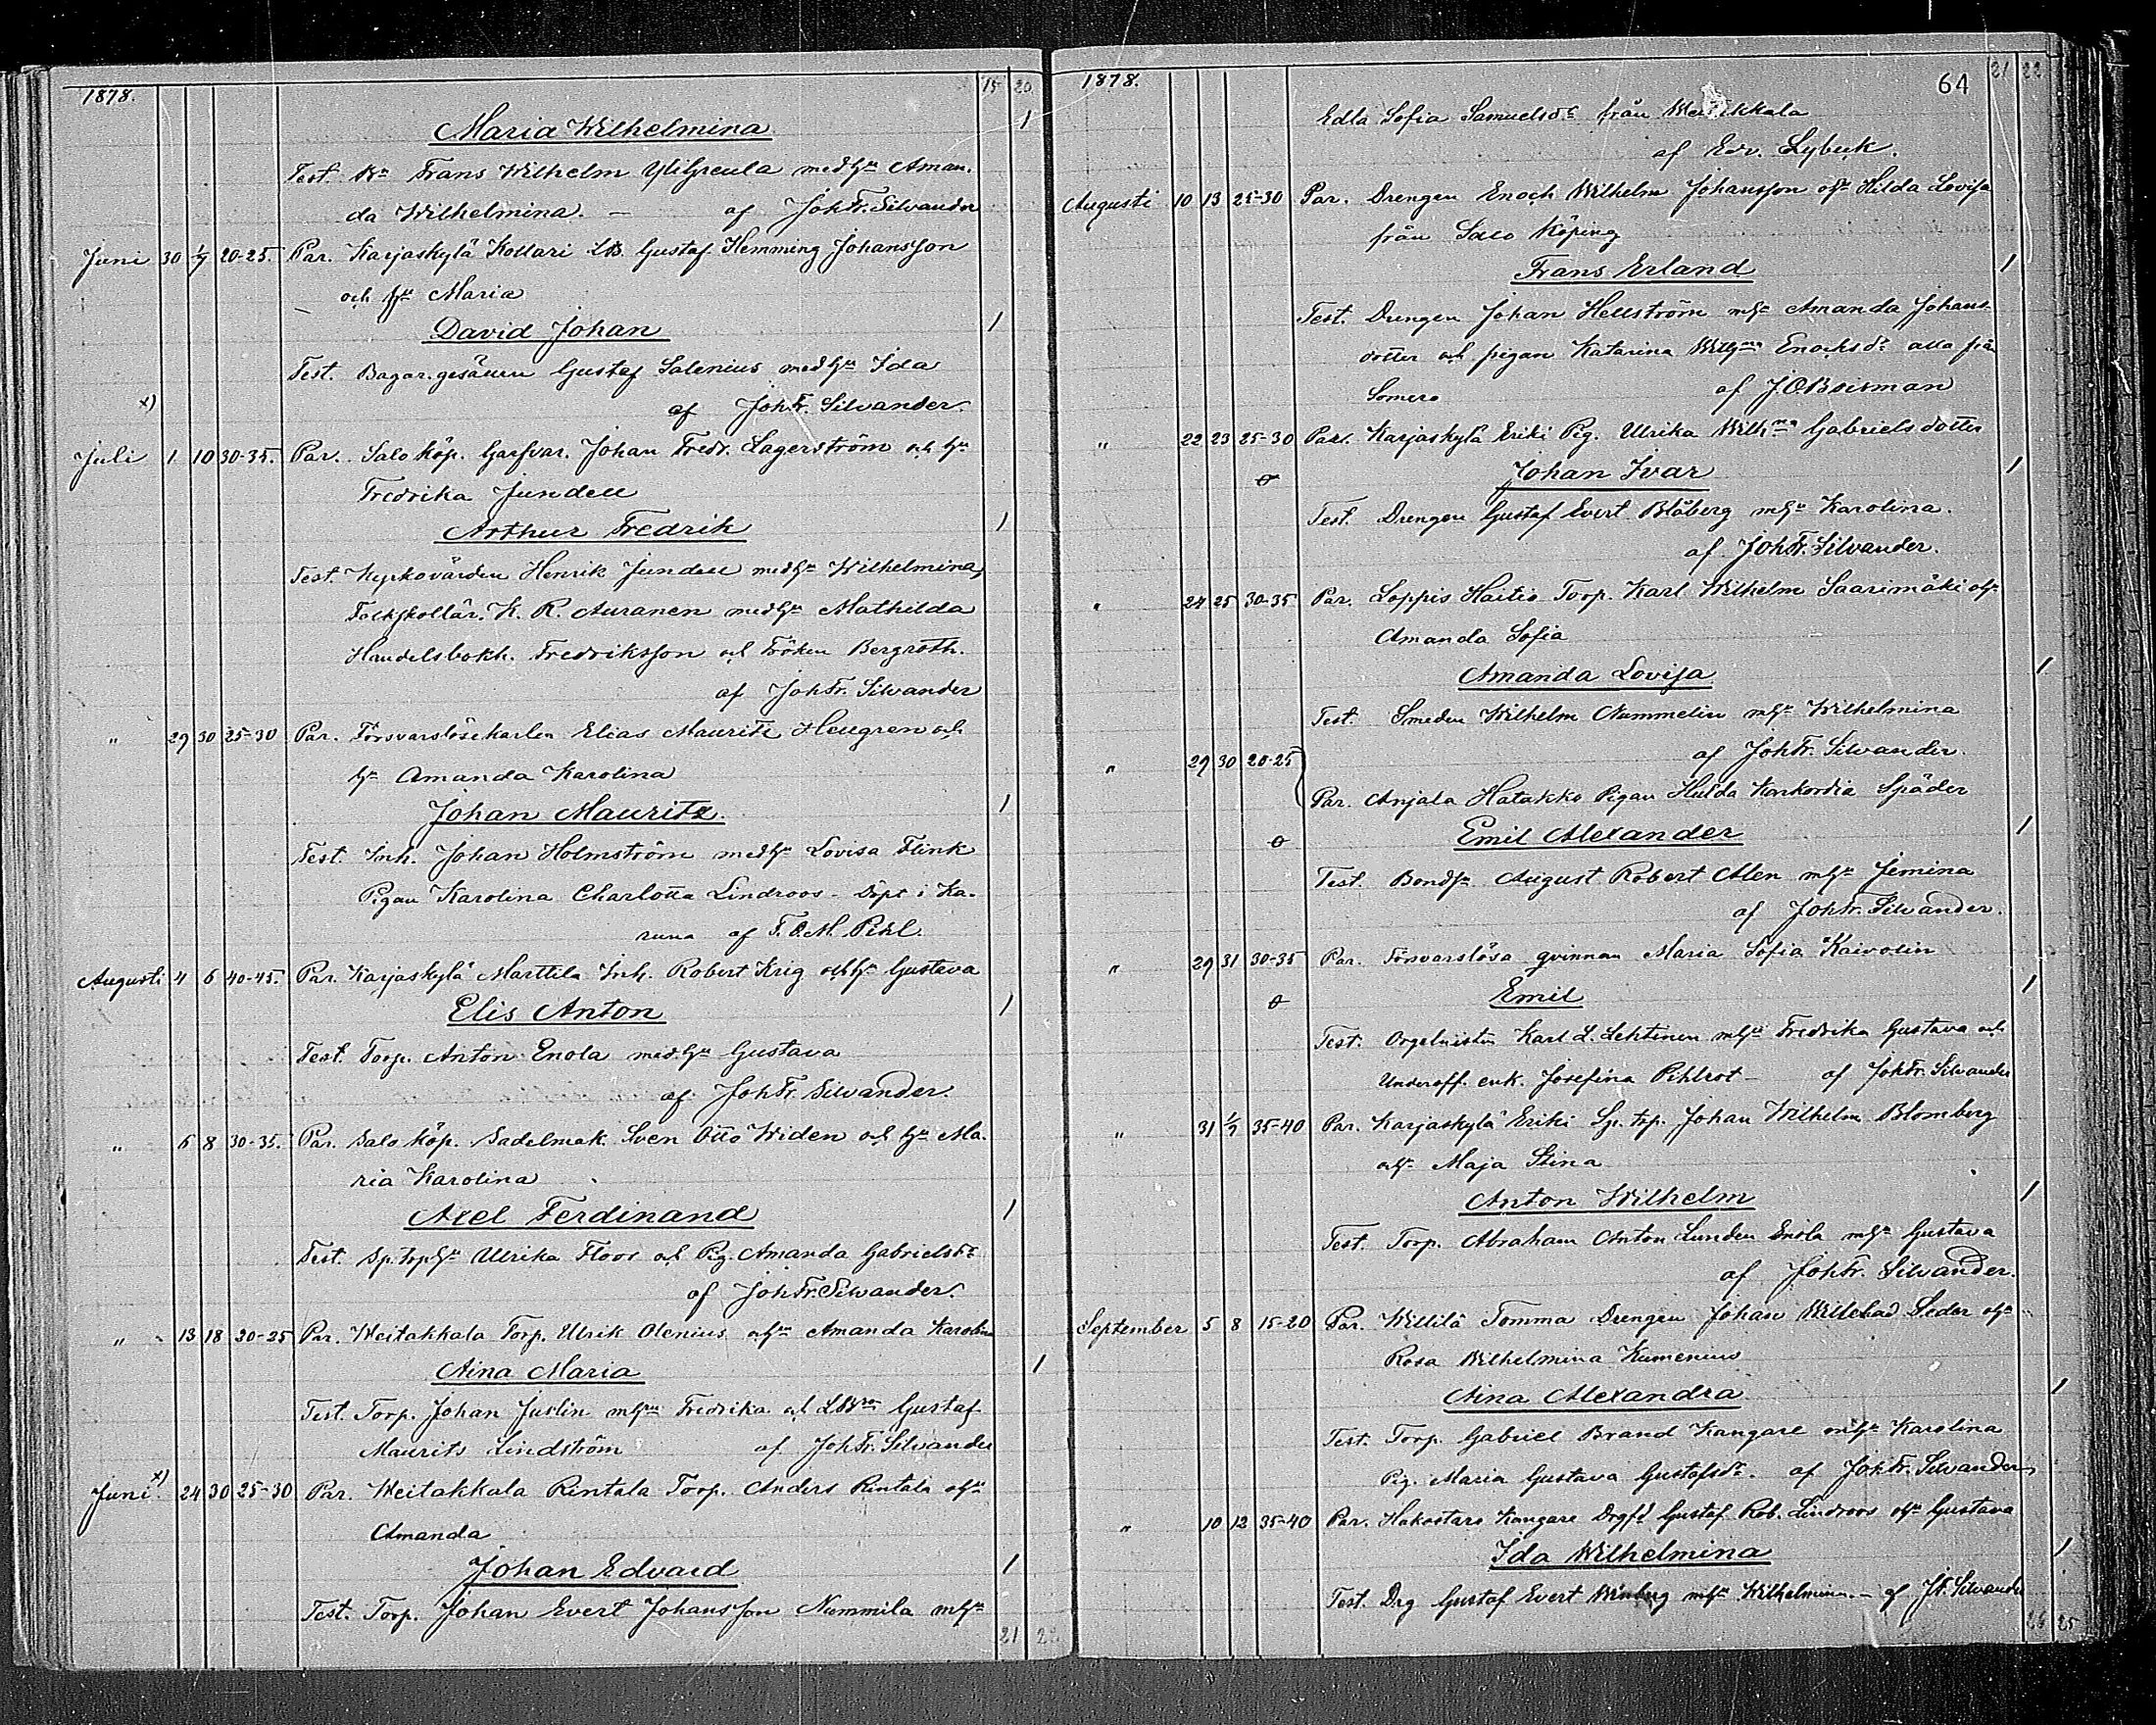 1878. 15 20
Maria Wilhelmina 1
Test. Frans Wilhelm Yligreula med hu Aman-
da Wilhelmina. — af Joh Fr. Silvander
Juni 30 1/7 20-25. Par. Karjaskylä Kollari Gustaf Hemming Johansson
och hu Maria
David Johan 1
Test. Bagar.gesällen Gustaf Salenius med hu Ida
x) af Joh Fr. Silvander.
Juli 1 10 30-35. Par. Salo köp. Garfvar. Johan Fredr. Lagerström och hu
Fredrika Jundell
Arthur Fredrik 1
Test. Kyrkovärden Henrik Jundell med hu Wilhelmina,
Folkskollär. K. R. Auranen med hu Mathilda
Handelsbokh. Fredriksson och Fröken Bergroth.
af Joh Fr. Silvander
" 29 30 25-30 Par. Försvarslösekarlen Elias Mauritz Heugren och
hu Amanda Karolina
Johan Mauritz. 1
Test. Inh. Johan Holmström med hu Lovisa Flink
Pigan Karolina Charlotta Lindroos - Döpt i Ka-
runa af F. O. M. Pihl.
Augusti 4 6 40-45. Par. Karjaskylä Marttila Inh. Robert Krig och hu Gustava
Elis Anton 1
Test. Torp. Anton Enola med hu Gustava
af Joh Fr. Silvander.
" 6 8 30-35. Par. Salo köp. Sadelmak. Sven Otto Widen och hu Ma-
ria Karolina
Axel Ferdinand 1
Test. Sp.torphu Ulrika Floor och Pig. Amanda Gabrielsdr
af Joh Fr. Silvander.
" 13 18 20-25 Par. Weitakkala Torp. Ulrik Olenius ohu Amanda Karolina
Aina Maria 1
Test. Torp. Johan Juslin mhu Fredrika och Gustaf
Maurits Lindström af Joh Fr. Silvander
Juni x) 24 30 25-30 Par. Weitakkala Rintala Torp. Anders Rintala ohu
Amanda
Johan Edvard 1
Test. Torp. Johan Evert Johansson Nummila mhu
21 22
1878. 64 21 22
Edla Sofia Samuelsdr från Weitakkala
af Edv. Lybeck.
Augusti 10 13 25-30 Par. Drengen Enoch Wilhelm Johansson ohu Hilda Lovisa
från Salo Köping
Frans Erland 1
Test. Drengen Johan Hellström mhu Amanda Johans-
dotter och pigan Katarina Wilhma Enochsdr alla från
Somero af J. O. Boisman
" 22 23 25-30 Par. Karjaskylä Eriki Pig. Ulrika Wilhma Gabrielsdotter
Johan Ivar 1
Test. Drengen Gustaf Evert Blåberg mhu Karolina.
af Joh Fr. Silvander.
" 24 25 30-35 Par. Loppis Haitio Torp. Karl Wilhelm Saarimäki ohu
Amanda Sofia
Amanda Lovisa 1
Test. Smeden Wilhelm Nummelin mhu Wilhelmina
af Joh Fr. Silvander.
" 29 30 20-25 Par. Anjala Hatakko Pigan Hulda Konkordia Späder
Emil Alexander 1
Test. Bonds. August Robert Alen mhu Jemina
af Joh Fr. Silvander.
" 29 31 30-35 Par. Försvarslösa qvinnan Maria Sofia Kaivolin
Emil 1
Test. Orgelnisten Karl L. Lehtinen mhu Fredrika Gustava och
Underoff. enk. Josefina Pihlrot — af Joh Fr. Silvander
" 31 1/9 35-40 Par. Karjaskylä Eriki Sp. trp. Johan Wilhelm Blomberg
ohu Maja Stina
Anton Wilhelm 1
Test. Torp. Abraham Anton Lunden Enola mhu Gustava
af Joh Fr. Silvander.
September 5 8 15-20 Par. Willilä Tomma Drengen Johan Willehad Seder ohu
Rosa Wilhelmina Kumenius
Aina Alexandra 1
Test. Torp. Gabriel Brand Kangare mhu Karolina
Pig. Maria Gustava Gustafsdr. af Joh Fr. Silvander
" 10 12 35-40 Par. Hakostaro Kangare Gustaf Rob. Lindroos ohu Gustava
Ida Wilhelmina 1
Test. Drg Gustaf Evert mhu Wilhelmina. — af J. F. Silvander
25